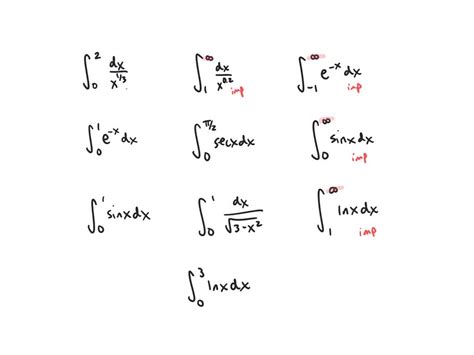 ∫₀² dx/x^(1/3)  ∫₁^∞ dx/x^0.2 imp  ∫₋₁^∞ e^(-x) dx imp
∫₀¹ e^(-x) dx  ∫₀^(π/2) secx dx  ∫₀^∞ sinx dx imp
∫₀¹ sinx dx  ∫₀¹ dx/√(3-x²)  ∫₁^∞ lnx dx imp
∫₀³ lnx dx